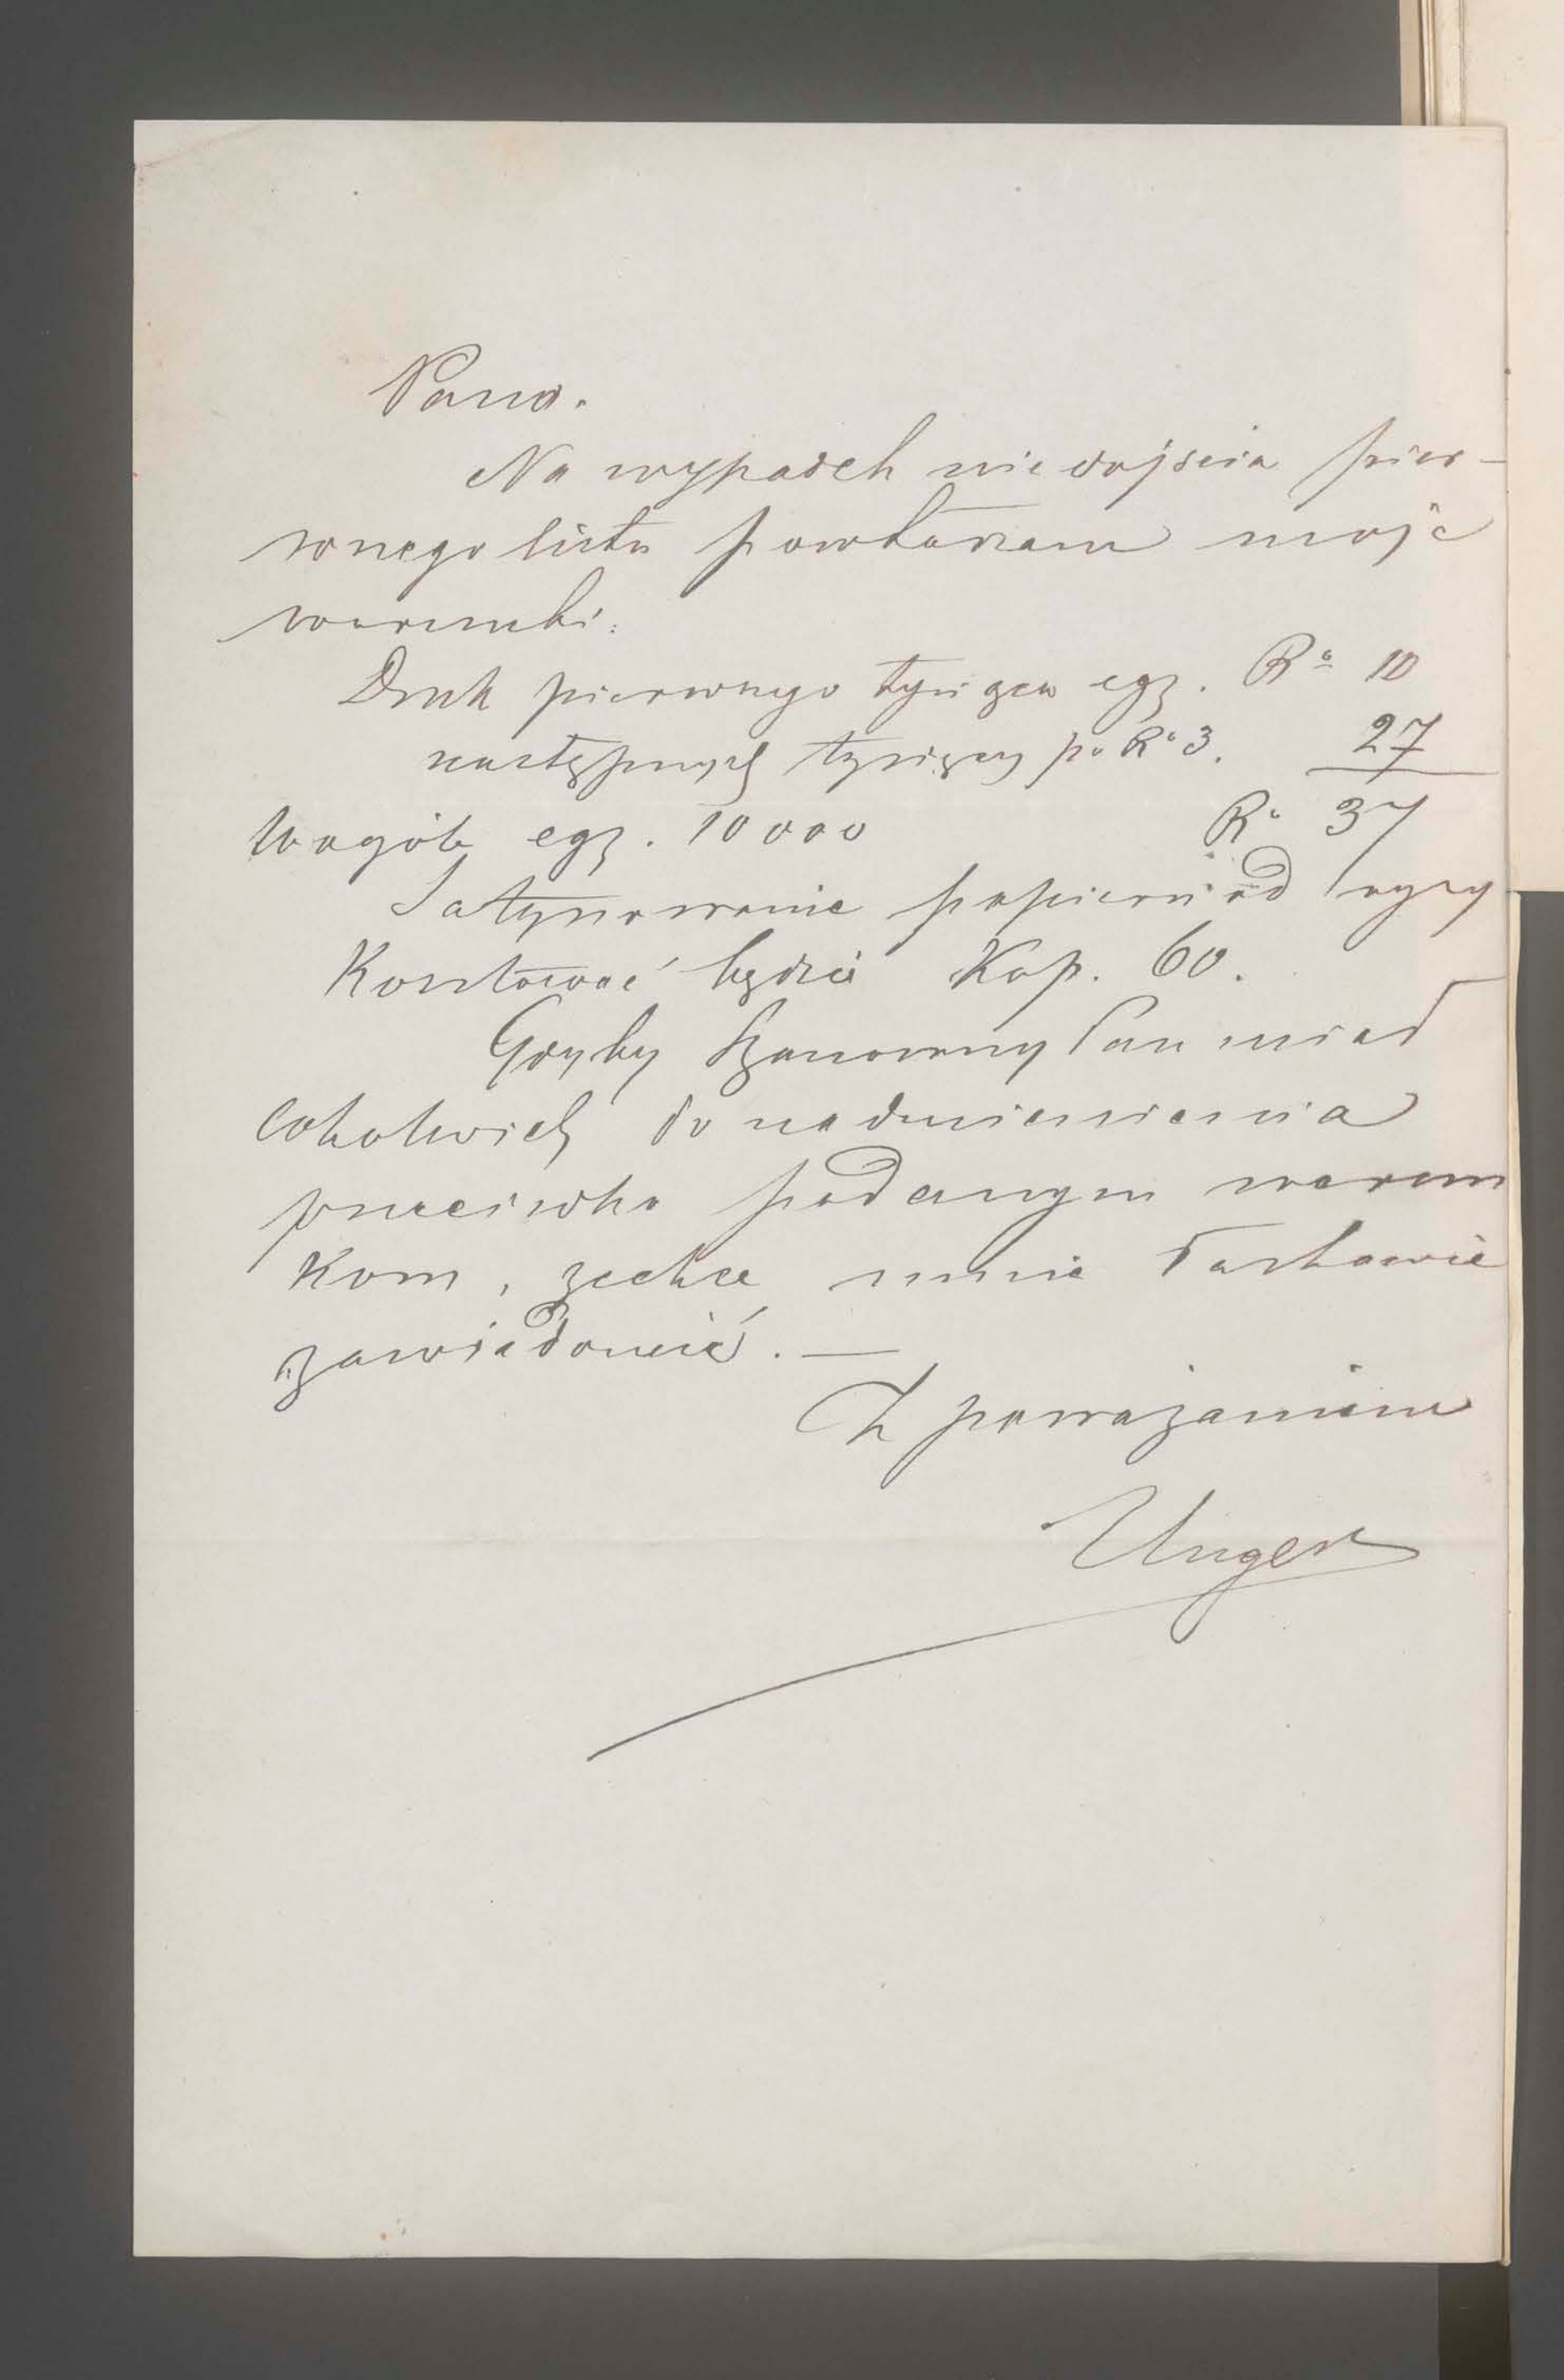 Pana.
Na wypadek niedojścia pier-
wszego listu powtarzam moje
warunki:
Druk pierwszego tysiąca egz. Rº 10
następnych tysięcy po Rº 3. 27
Wogóle egz. 10000 Rº 37
Satynowanie papieru od ryzy
Kosztować będzie Kop. 60.
Gdyby Szanowny Pan miał
cokolwiek do nadmienienia
przeciwko podanym warun
kom, zechce mnie łaskawie
zawiadomić. —
Z poważaniem
Unger